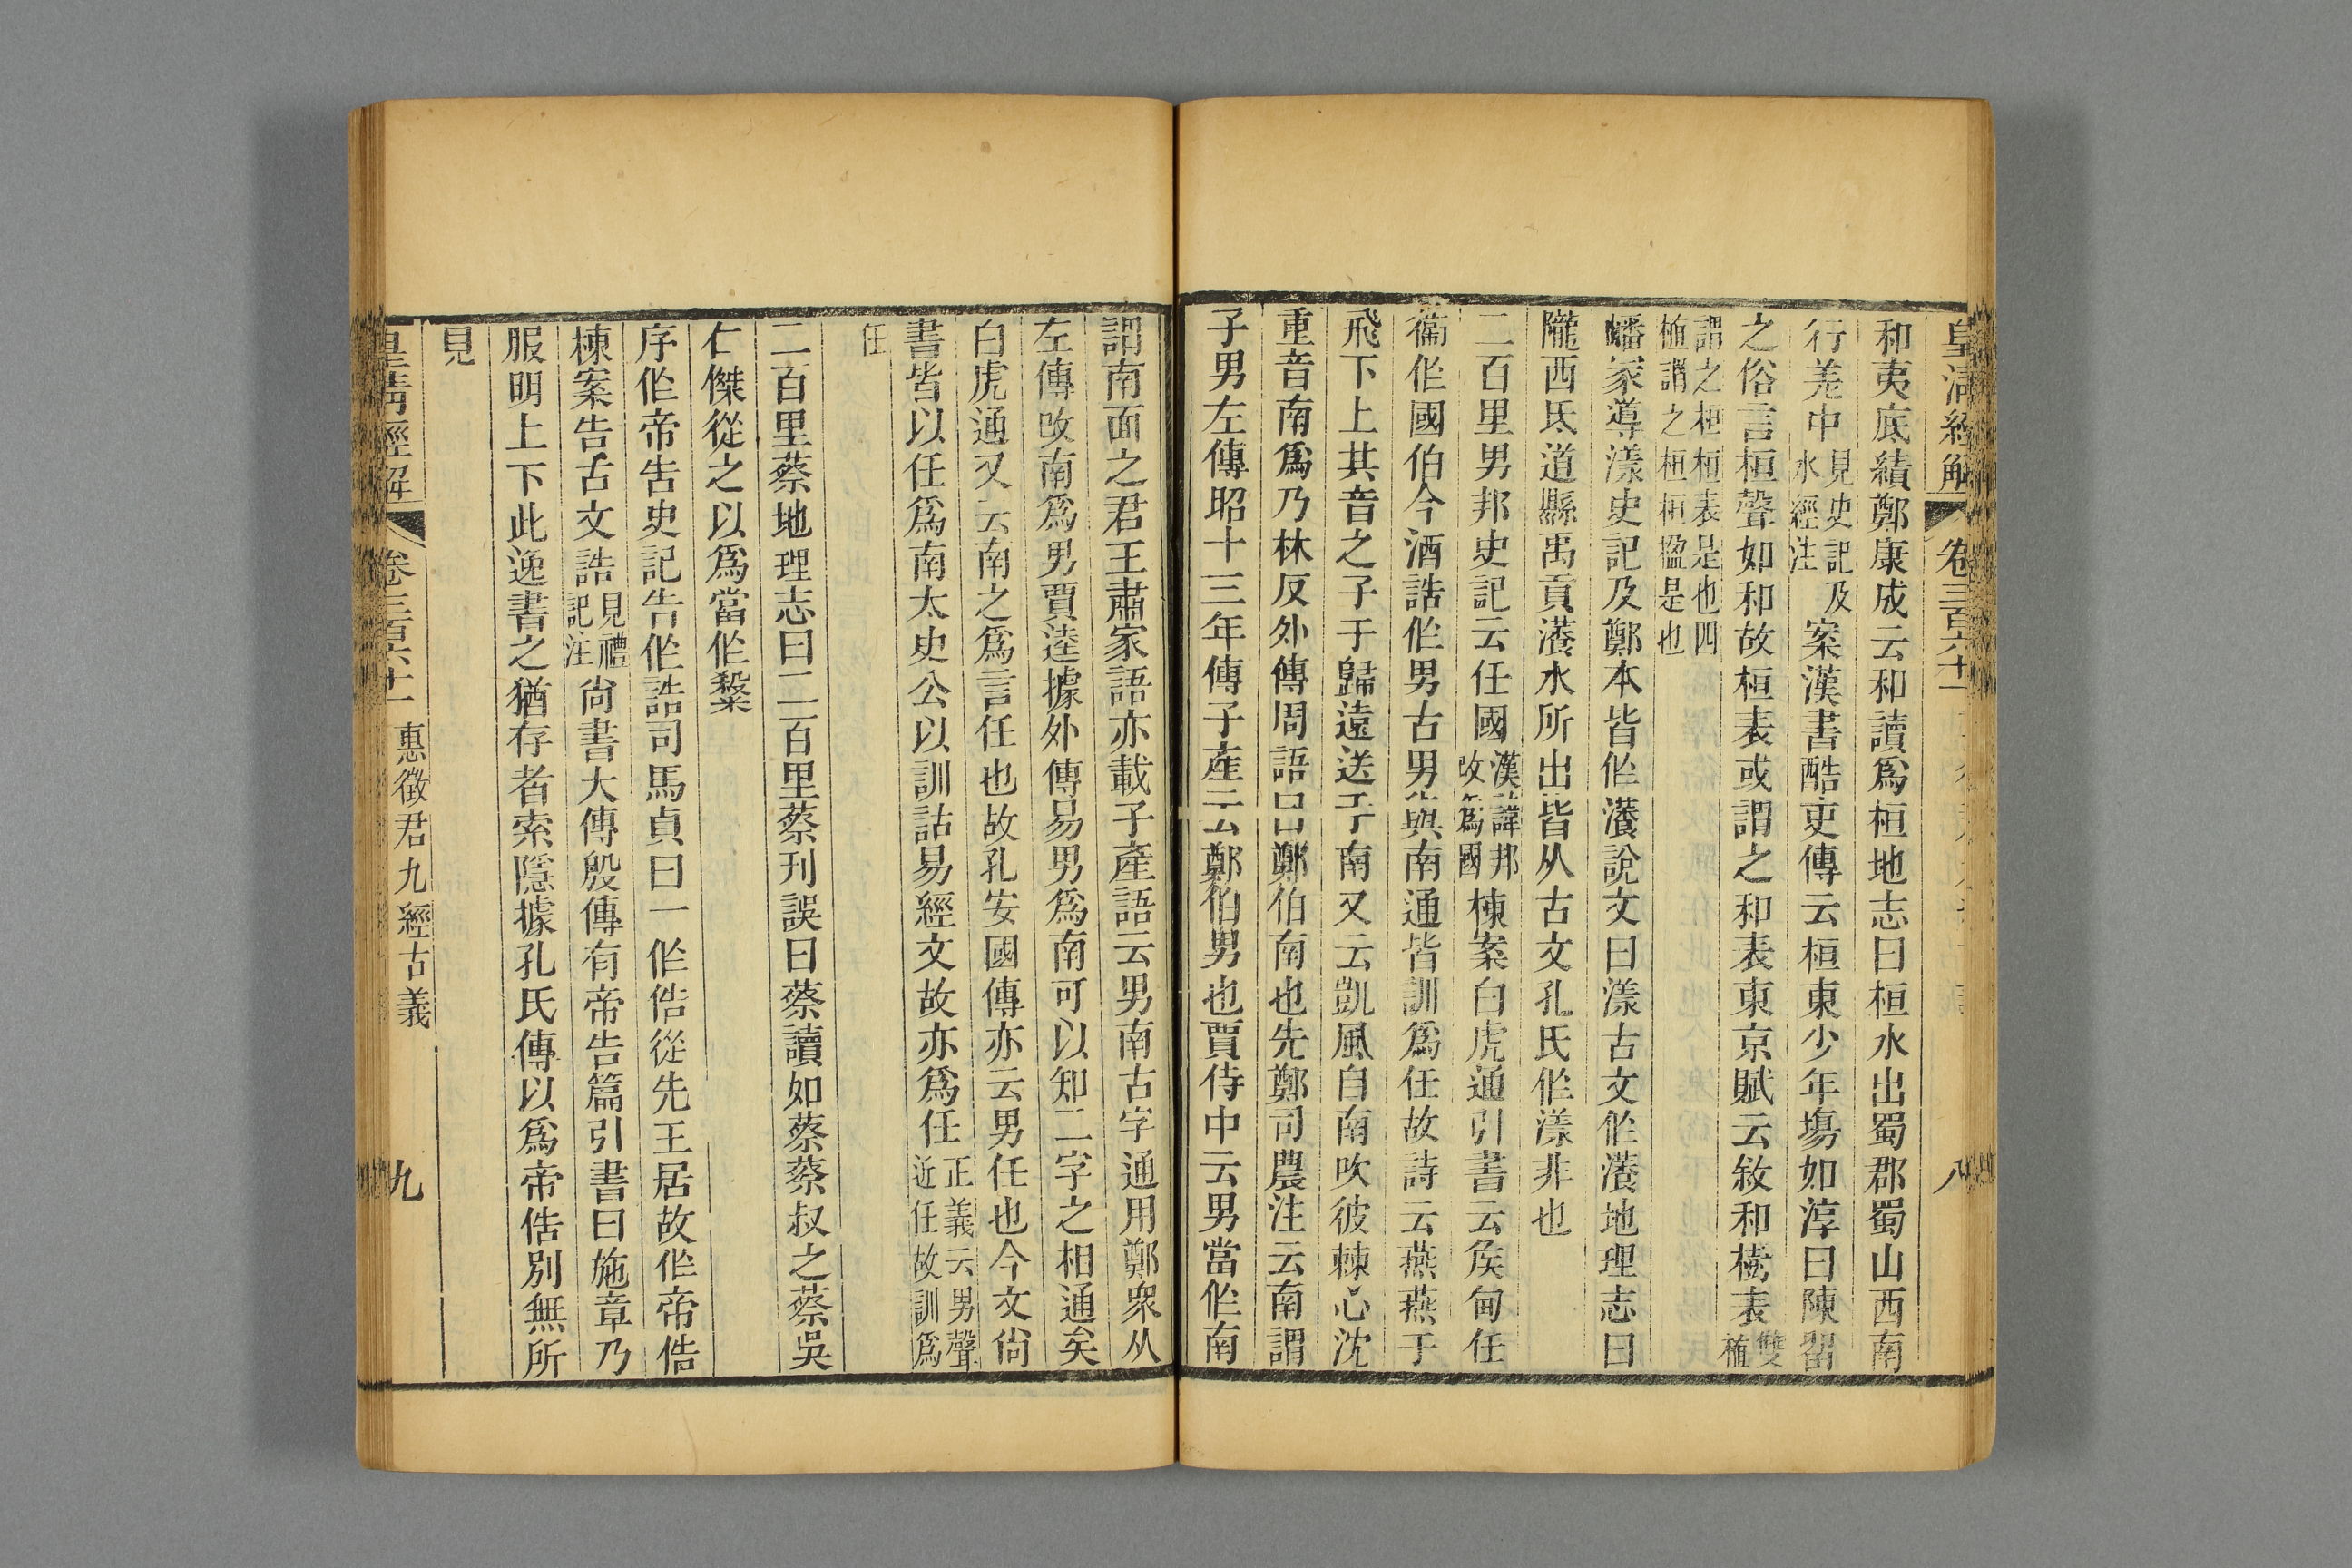 皇清經解 卷三百六十一 八
和夷厎績鄭康成云和讀爲桓地志曰桓水出蜀郡蜀山西南
行羌中見史記及水經注案漢書酷吏傳云桓東少年塲如淳曰陳畱
之俗言桓聲如和故桓表或謂之和表東京賦云敘和樹表雙植
謂之桓桓表是也四植謂之桓桓楹是也
嶓冢導漾史記及鄭本皆作瀁說文曰漾古文作瀁地理志曰
隴西氐道縣禹貢瀁水所出皆从古文孔氏作漾非也
二百里男邦史記云任國漢諱邦改爲國棟案白虎通引書云矦甸任
衞作國伯今酒誥作男古男與南通皆訓爲任故詩云燕燕于
飛下上其音之子于歸遠送于南又云凱風自南吹彼棘心沈
重音南爲乃林反外傳周語曰鄭伯南也先鄭司農注云南謂
子男左傳昭十三年傳子產云鄭伯男也賈侍中云男當作南
謂南面之君王肅家語亦載子產語云男南古字通用鄭衆从
左傳改南爲男賈逵據外傳易男爲南可以知二字之相通矣
白虎通又云南之爲言任也故孔安國傳亦云男任也今文尙
書皆以任爲南太史公以訓詁易經文故亦爲任正義云男聲近任故訓爲
任
二百里蔡地理志曰二百里蔡刊誤曰蔡讀如蔡蔡叔之蔡吳
仁傑從之以爲當作𥻦
序作帝告史記告作誥司馬貞曰一作俈從先王居故作帝俈
棟案告古文誥見禮記注尙書大傳殷傳有帝告篇引書曰施章乃
服明上下此逸書之猶存者索隱據孔氏傳以爲帝俈別無所
見
皇清經解 卷三百六十一 惠徵君九經古義 九